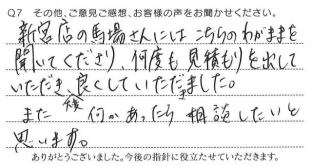 Q7 その他、ご意見ご感想、お客様の声をお聞かせください。
新宮店の馬場さんにはこちらのわがままを
聞いてくださり、何度も見積もりを出して
いただき、良くしていただきました。
また今後何かあったら相談したいと
思います。
ありがとうございました。今後の指針に役立たせていただきます。